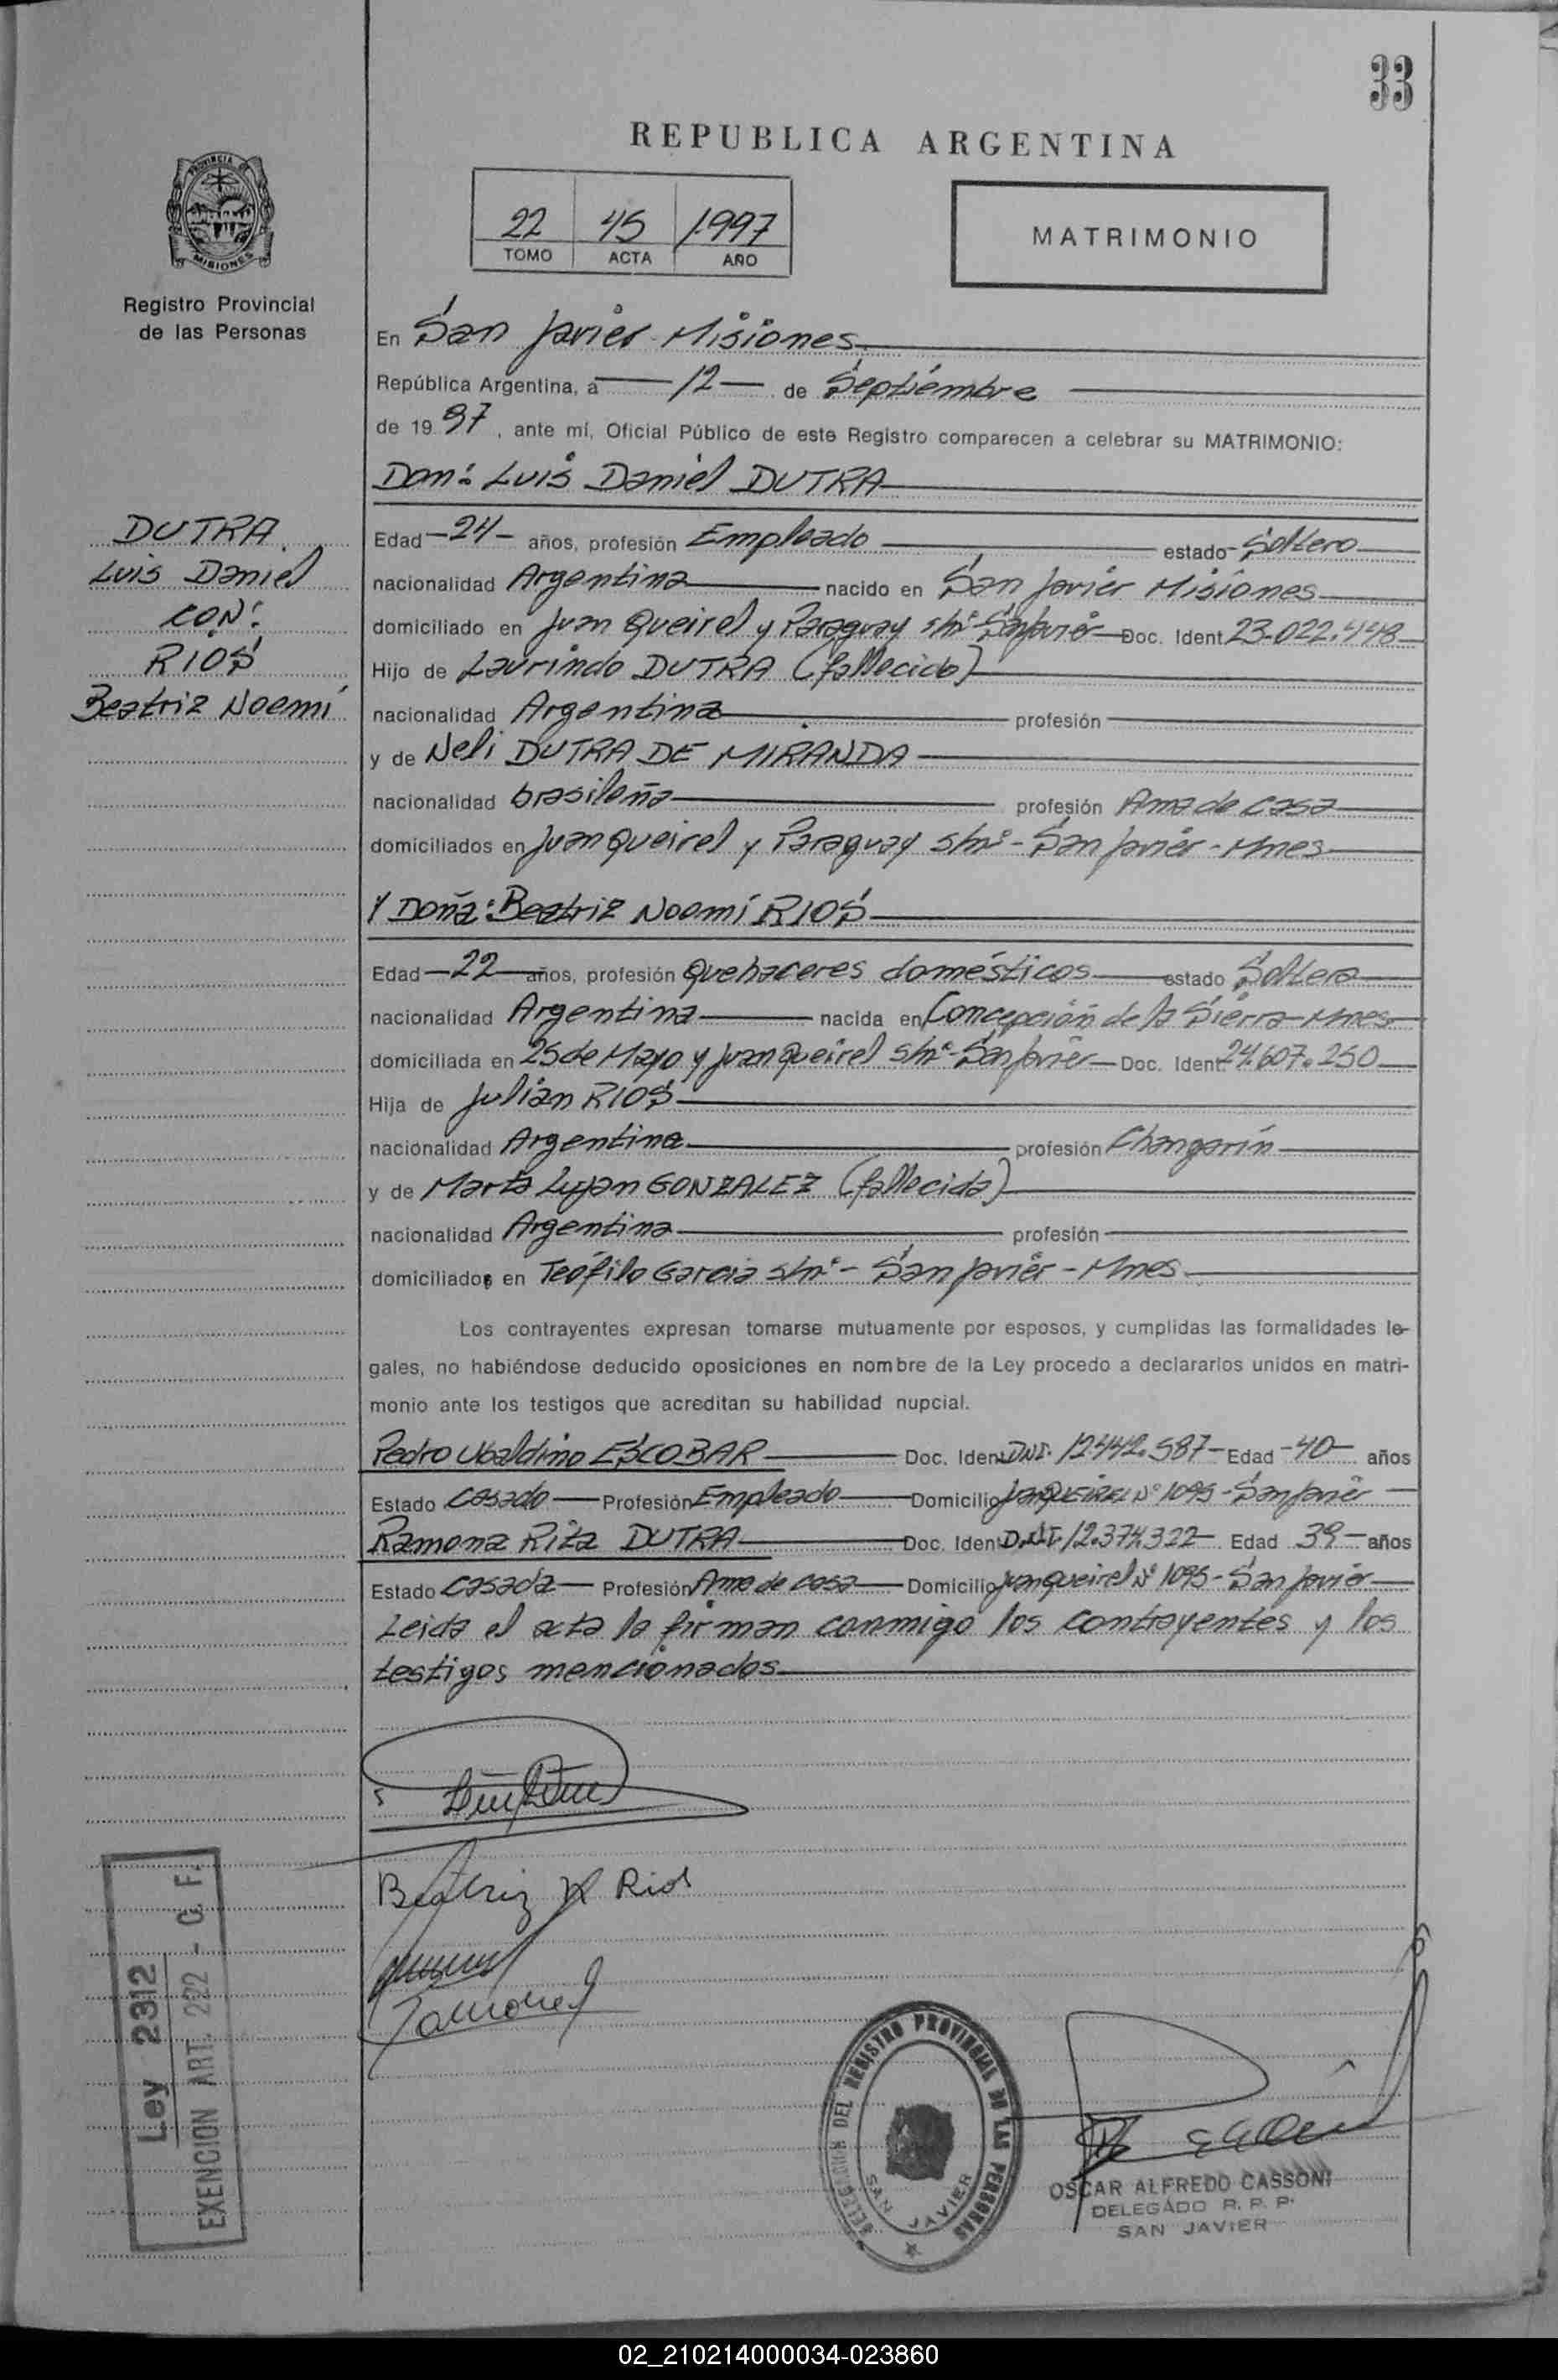 33
REPUBLICA ARGENTINA
22 45 1997
TOMO ACTA AÑO
MATRIMONIO
PROVINCIA DE MISIONES
Registro Provincial
de las Personas
En San Javier - Misiones
República Argentina, a 12 de Septiembre
de 1997, ante mí, Oficial Público de este Registro comparecen a celebrar su MATRIMONIO:
Don: Luis Daniel DUTRA
DUTRA
Luis Daniel
CON:
RIOS
Beatriz Noemí
Edad -24- años, profesión Empleado estado Soltero
nacionalidad Argentina nacido en San Javier Misiones
domiciliado en Juan Queirel y Paraguay s/nº-San Javier Doc. Ident. 23.022.448
Hijo de Laurindo DUTRA (fallecido)
nacionalidad Argentina profesión
y de Neli DUTRA DE MIRANDA
nacionalidad brasileña profesión Ama de casa
domiciliados en Juan Queirel y Paraguay s/nº - San Javier - Mnes
Y Doña: Beatriz Noemí RIOS
Edad -22- años, profesión Quehaceres domésticos estado Soltera
nacionalidad Argentina nacida en Concepción de la Sierra-Mnes
domiciliada en 25 de Mayo y Juan Queirel s/nº-San Javier Doc. Ident. 24.607.250
Hija de Julián RIOS
nacionalidad Argentina profesión Changarín
y de Marta Lujan GONZALEZ (fallecida)
nacionalidad Argentina profesión
domiciliados en Teófilo Garcia s/nº - San Javier - Mnes
Los contrayentes expresan tomarse mutuamente por esposos, y cumplidas las formalidades le-
gales, no habiéndose deducido oposiciones en nombre de la Ley procedo a declararlos unidos en matri-
monio ante los testigos que acreditan su habilidad nupcial.
Pedro Ubaldino ESCOBAR Doc. Ident. DNI. 12.442.587 - Edad -40- años
Estado Casado Profesión Empleado Domicilio Juan QUEIREL Nº 1095 - San Javier
Ramona Rita DUTRA Doc. Ident. D.N.I. 12.374.322 Edad 39 años
Estado Casada Profesión Ama de casa Domicilio Juan Queirel Nº 1095 - San Javier
Leida el acta la firman conmigo los contrayentes y los
testigos mencionados
Beatriz N Rios
Ley 2312
EXENCION ART. 222 - C. F.
DELEGACION DEL REGISTRO PROVINCIAL DE LAS PERSONAS
SAN JAVIER
OSCAR ALFREDO CASSONI
DELEGADO R. P. P.
SAN JAVIER
02_210214000034-023860